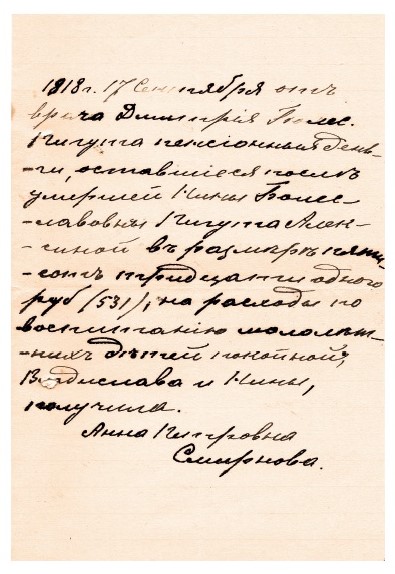 1918 г. 17 Сентября отъ
врача Дмитрія Болес.
пенсіонныя день-
-ги, оставшіеся послѣ
умершей Нины Болес-
-лавовны Алек-
-синой въ размѣрѣ пяти-
-сотъ тридцати одного
руб (531), на расходы по
воспитанію малолѣт-
-нихъ дѣтей покойной,
Владислава и Нины,
получила.
Анна Петровна
Смирнова.